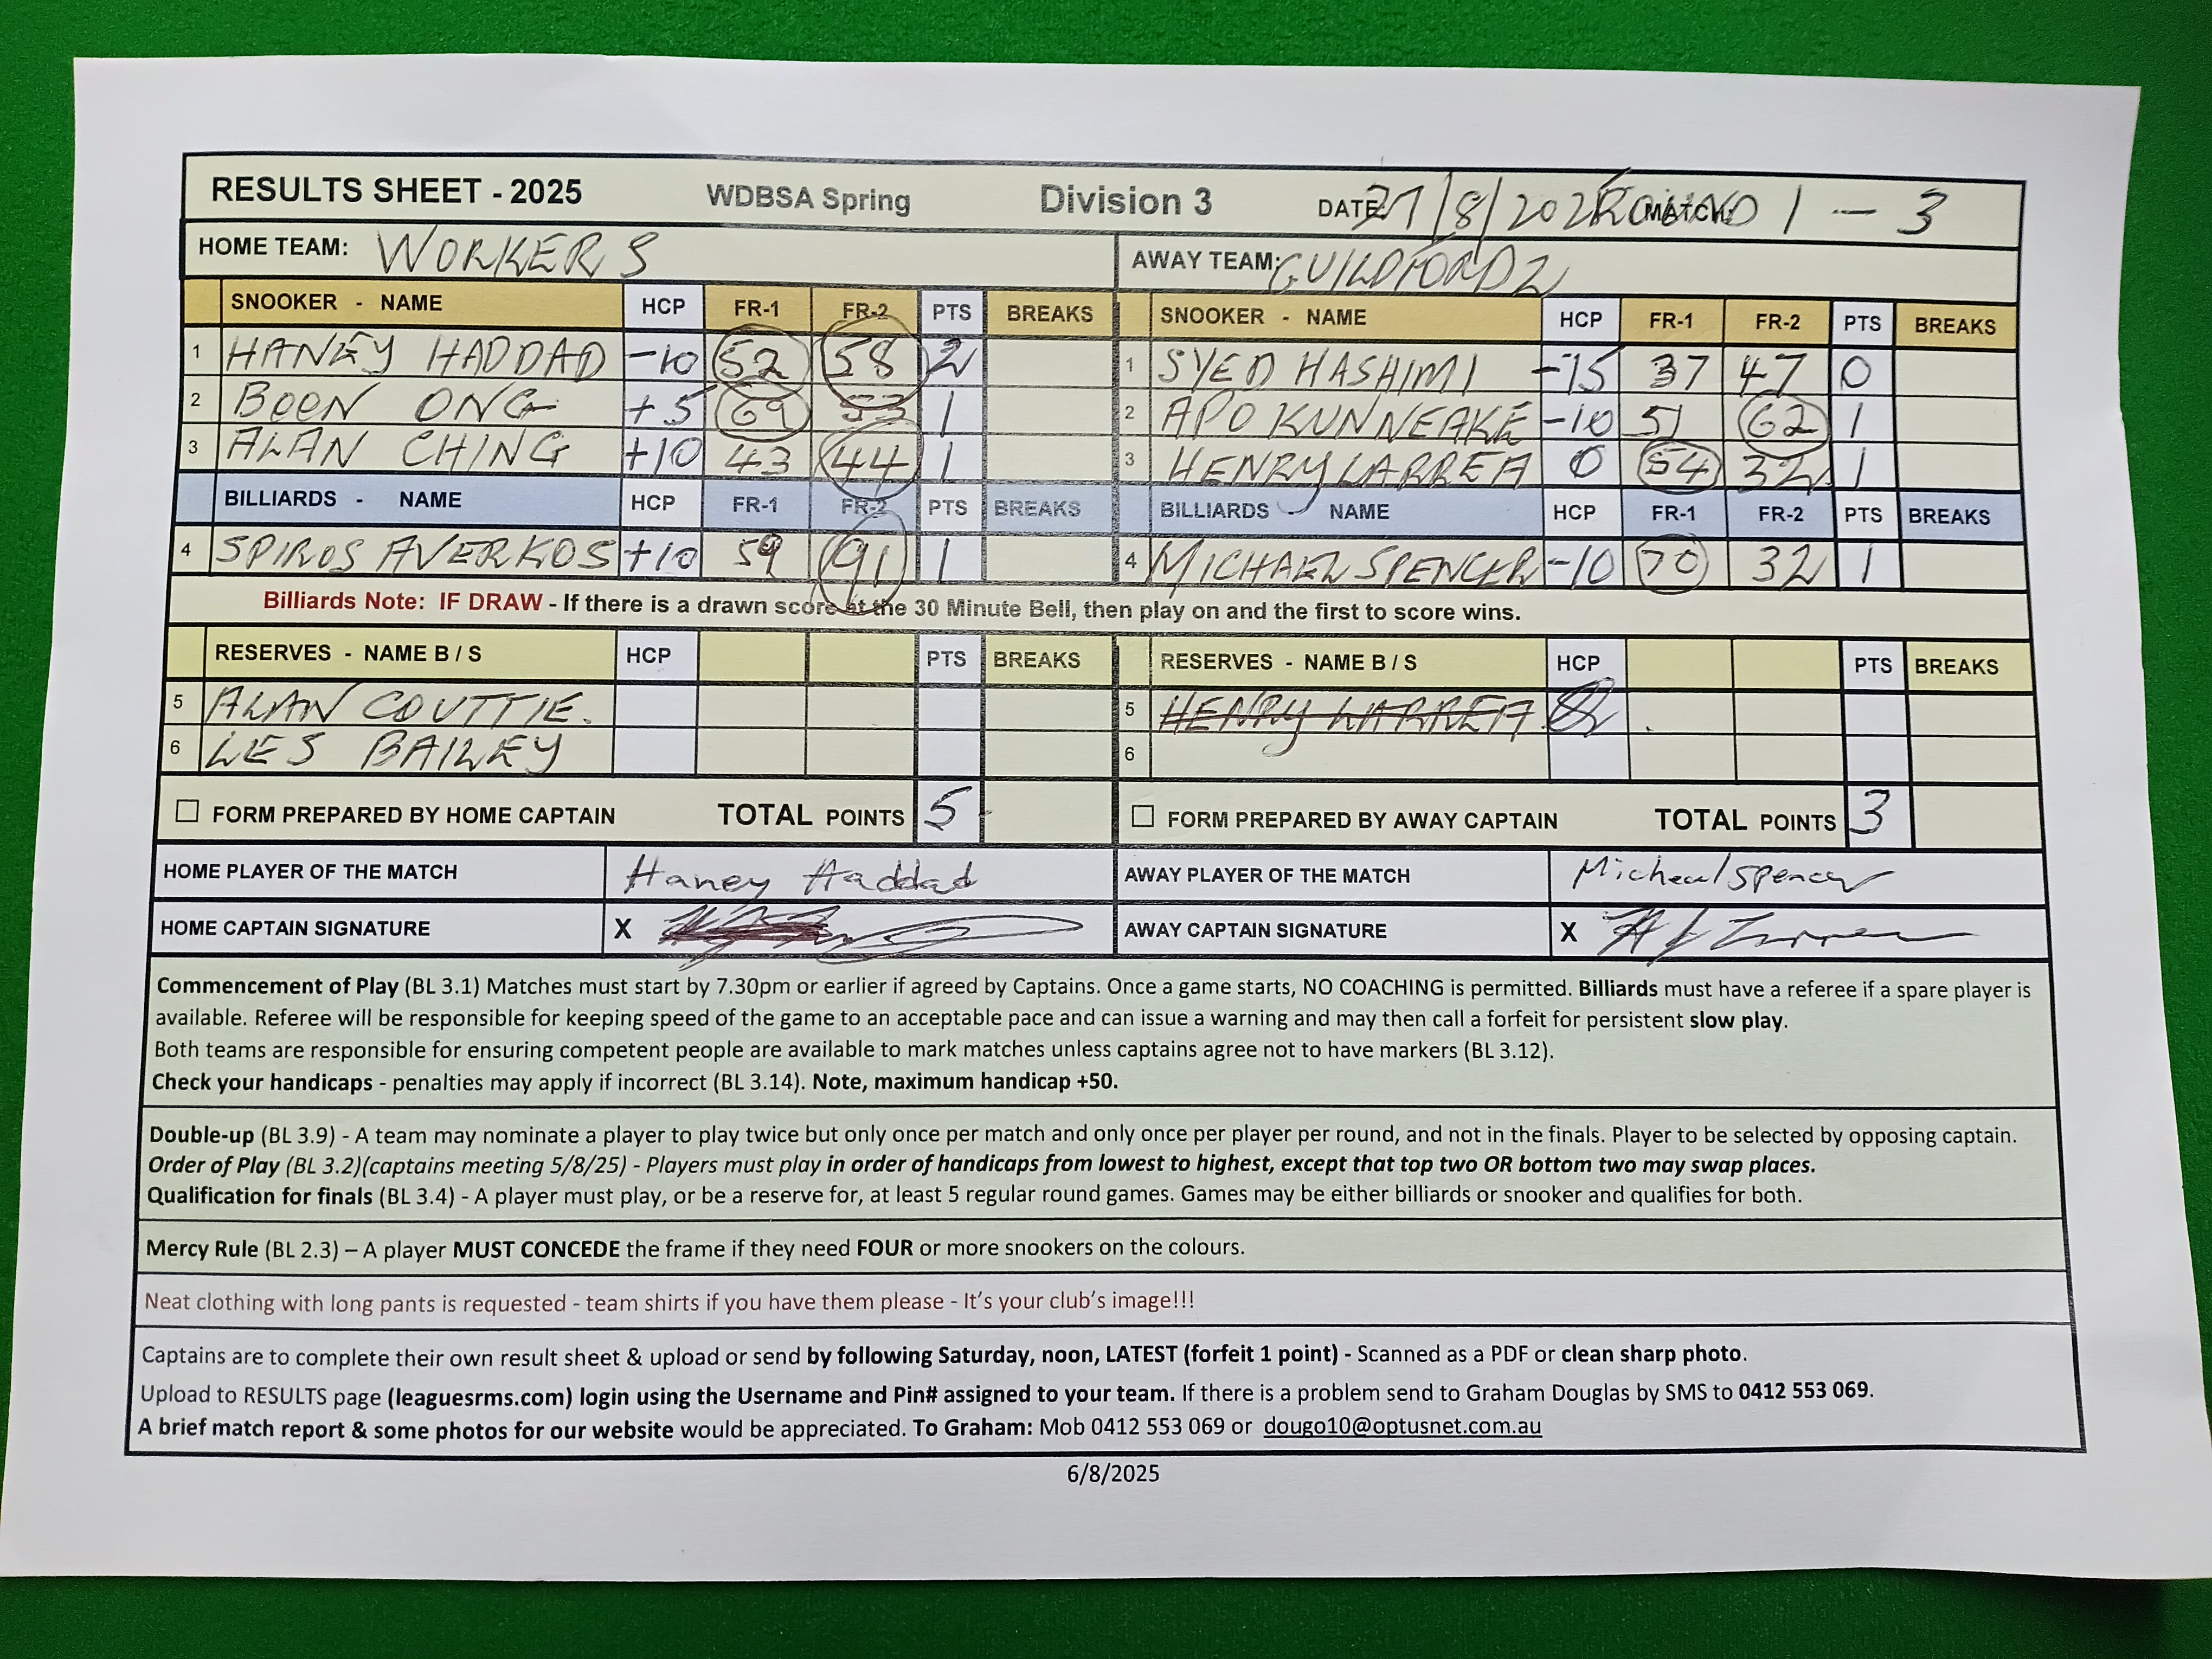 RESULTS SHEET - 2025 WDBSA Spring Division 3 DATE: 27/8/2025 MATCH: ROUND 1 - 3
HOME TEAM: WORKERS AWAY TEAM: GUILDFORD 2
SNOOKER - NAME HCP FR-1 FR-2 PTS BREAKS SNOOKER - NAME HCP FR-1 FR-2 PTS BREAKS
1 HANEY HADDAD -10 52 58 2 1 SYED HASHIMI -15 37 47 0
2 BOON ONG +5 69 53 1 2 APO KUNNEAKE -10 51 62 1
3 ALAN CHING +10 43 44 1 3 HENRY LARREA 0 54 32 1
BILLIARDS - NAME HCP FR-1 FR-2 PTS BREAKS BILLIARDS - NAME HCP FR-1 FR-2 PTS BREAKS
4 SPIROS AVERKOS +10 59 91 1 4 MICHAEL SPENCER -10 70 32 1
Billiards Note: IF DRAW - If there is a drawn score at the 30 Minute Bell, then play on and the first to score wins.
RESERVES - NAME B / S HCP PTS BREAKS RESERVES - NAME B / S HCP PTS BREAKS
5 ALAN COUTTIE. 5 HENRY LARREA
6 LES BAILEY 6
FORM PREPARED BY HOME CAPTAIN TOTAL POINTS 5 FORM PREPARED BY AWAY CAPTAIN TOTAL POINTS 3
HOME PLAYER OF THE MATCH Haney Haddad AWAY PLAYER OF THE MATCH Micheal Spencer
HOME CAPTAIN SIGNATURE X AWAY CAPTAIN SIGNATURE X
Commencement of Play (BL 3.1) Matches must start by 7.30pm or earlier if agreed by Captains. Once a game starts, NO COACHING is permitted. Billiards must have a referee if a spare player is
available. Referee will be responsible for keeping speed of the game to an acceptable pace and can issue a warning and may then call a forfeit for persistent slow play.
Both teams are responsible for ensuring competent people are available to mark matches unless captains agree not to have markers (BL 3.12).
Check your handicaps - penalties may apply if incorrect (BL 3.14). Note, maximum handicap +50.
Double-up (BL 3.9) - A team may nominate a player to play twice but only once per match and only once per player per round, and not in the finals. Player to be selected by opposing captain.
Order of Play (BL 3.2)(captains meeting 5/8/25) - Players must play in order of handicaps from lowest to highest, except that top two OR bottom two may swap places.
Qualification for finals (BL 3.4) - A player must play, or be a reserve for, at least 5 regular round games. Games may be either billiards or snooker and qualifies for both.
Mercy Rule (BL 2.3) – A player MUST CONCEDE the frame if they need FOUR or more snookers on the colours.
Neat clothing with long pants is requested - team shirts if you have them please - It's your club's image!!!
Captains are to complete their own result sheet & upload or send by following Saturday, noon, LATEST (forfeit 1 point) - Scanned as a PDF or clean sharp photo.
Upload to RESULTS page (leaguesrms.com) login using the Username and Pin# assigned to your team. If there is a problem send to Graham Douglas by SMS to 0412 553 069.
A brief match report & some photos for our website would be appreciated. To Graham: Mob 0412 553 069 or dougo10@optusnet.com.au
6/8/2025